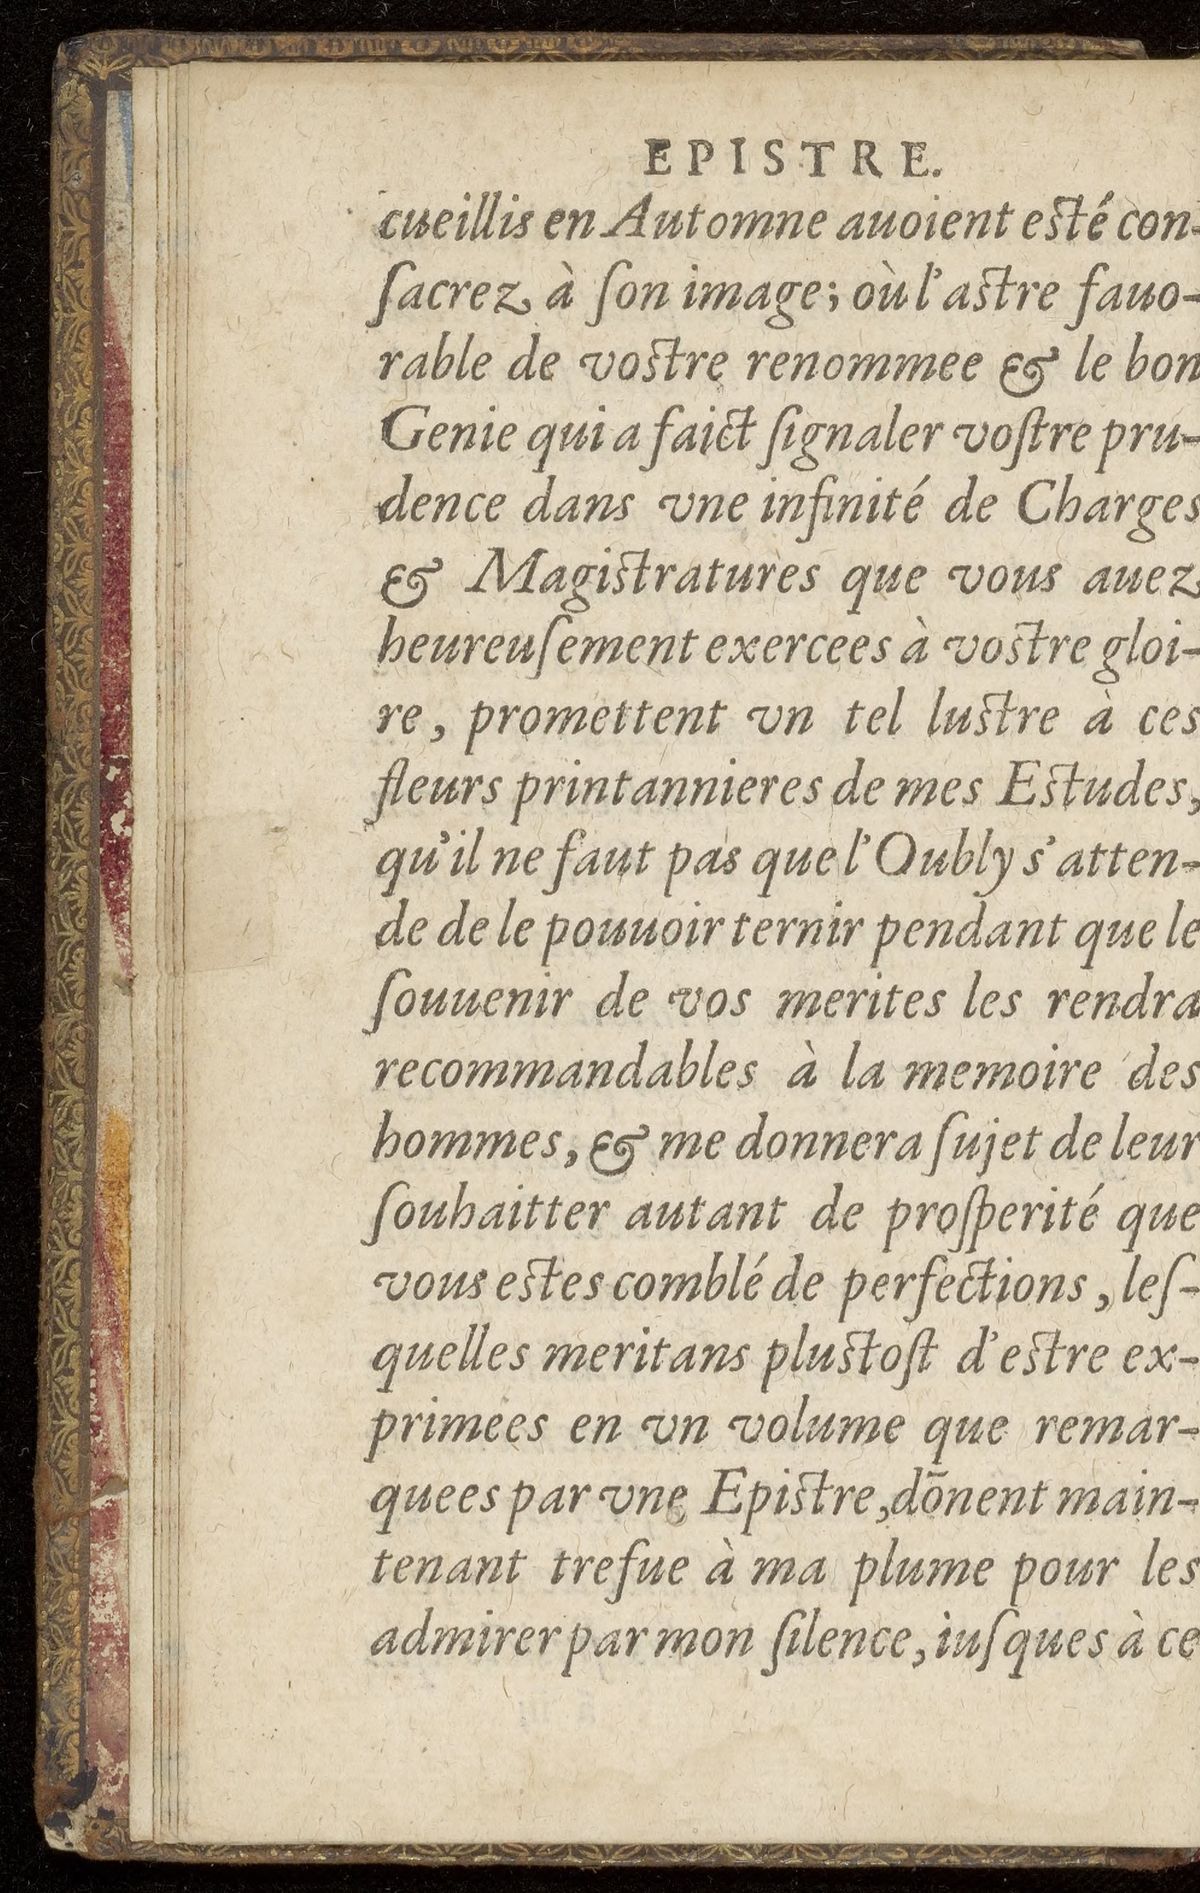 EPISTRE.
cueillis en Automne auoient esté con-
ſacrez à ſon image; où l'astre fauo-
rable de vostre renommee & le bon
Genie qui a faict ſignaler voſtre pru-
dence dans vne infinité de Charges
& Magistratures que vous auez
heureuſement exercees à vostre gloi-
re, promettent vn tel lustre à ces
fleurs printannieres de mes Estudes,
qu'il ne faut pas que l'Oubly s'atten-
de de le pouuoir ternir pendant que le
ſouuenir de vos merites les rendra
recommandables à la memoire des
hommes, & me donnera ſujet de leur
ſouhaitter autant de proſperité que
vous estes comblé de perfections, leſ-
quelles meritans plustoſt d'estre ex-
primees en vn volume que remar-
quees par vne Epistre, dōnent main-
tenant trefue à ma plume pour les
admirer par mon ſilence, iuſques à ce